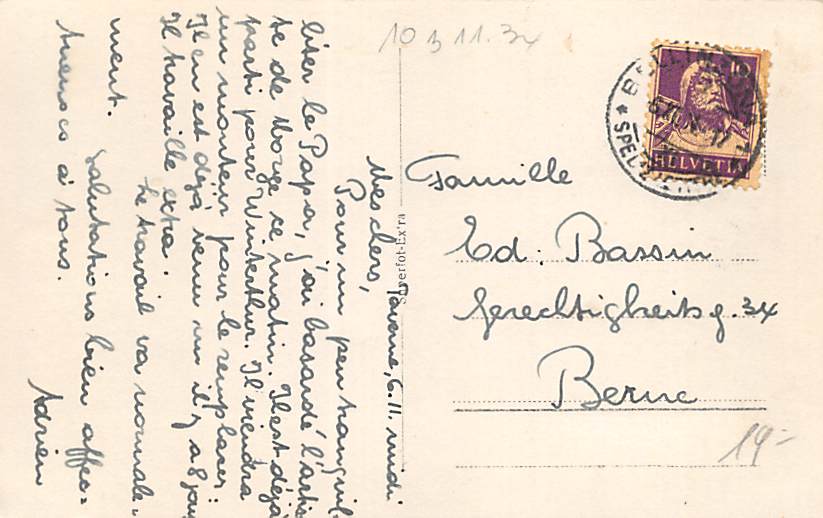 10 11.34
Taverne, 6. 11. midi
Mes chers,
Pour un peu tranquil
liser le Papa, j'ai basardé l'artis
te de Morge ce matin. Il est déjà
parti pour Winterthur. Il viendra
un monteur pour le remplacer:
Il en est déjà venu un il y a 8 jour
Il travaille extra.
Le travail va normale-
ment. Salutations bien affec=
tueuses à tous.
Adrien
Superfot-Ex'ra
BELLINZONA
SPED. LETT.
10
HELVETIA
Famille
Ed. Bassin
Gerechtigkeitsg. 34
Berne
19-